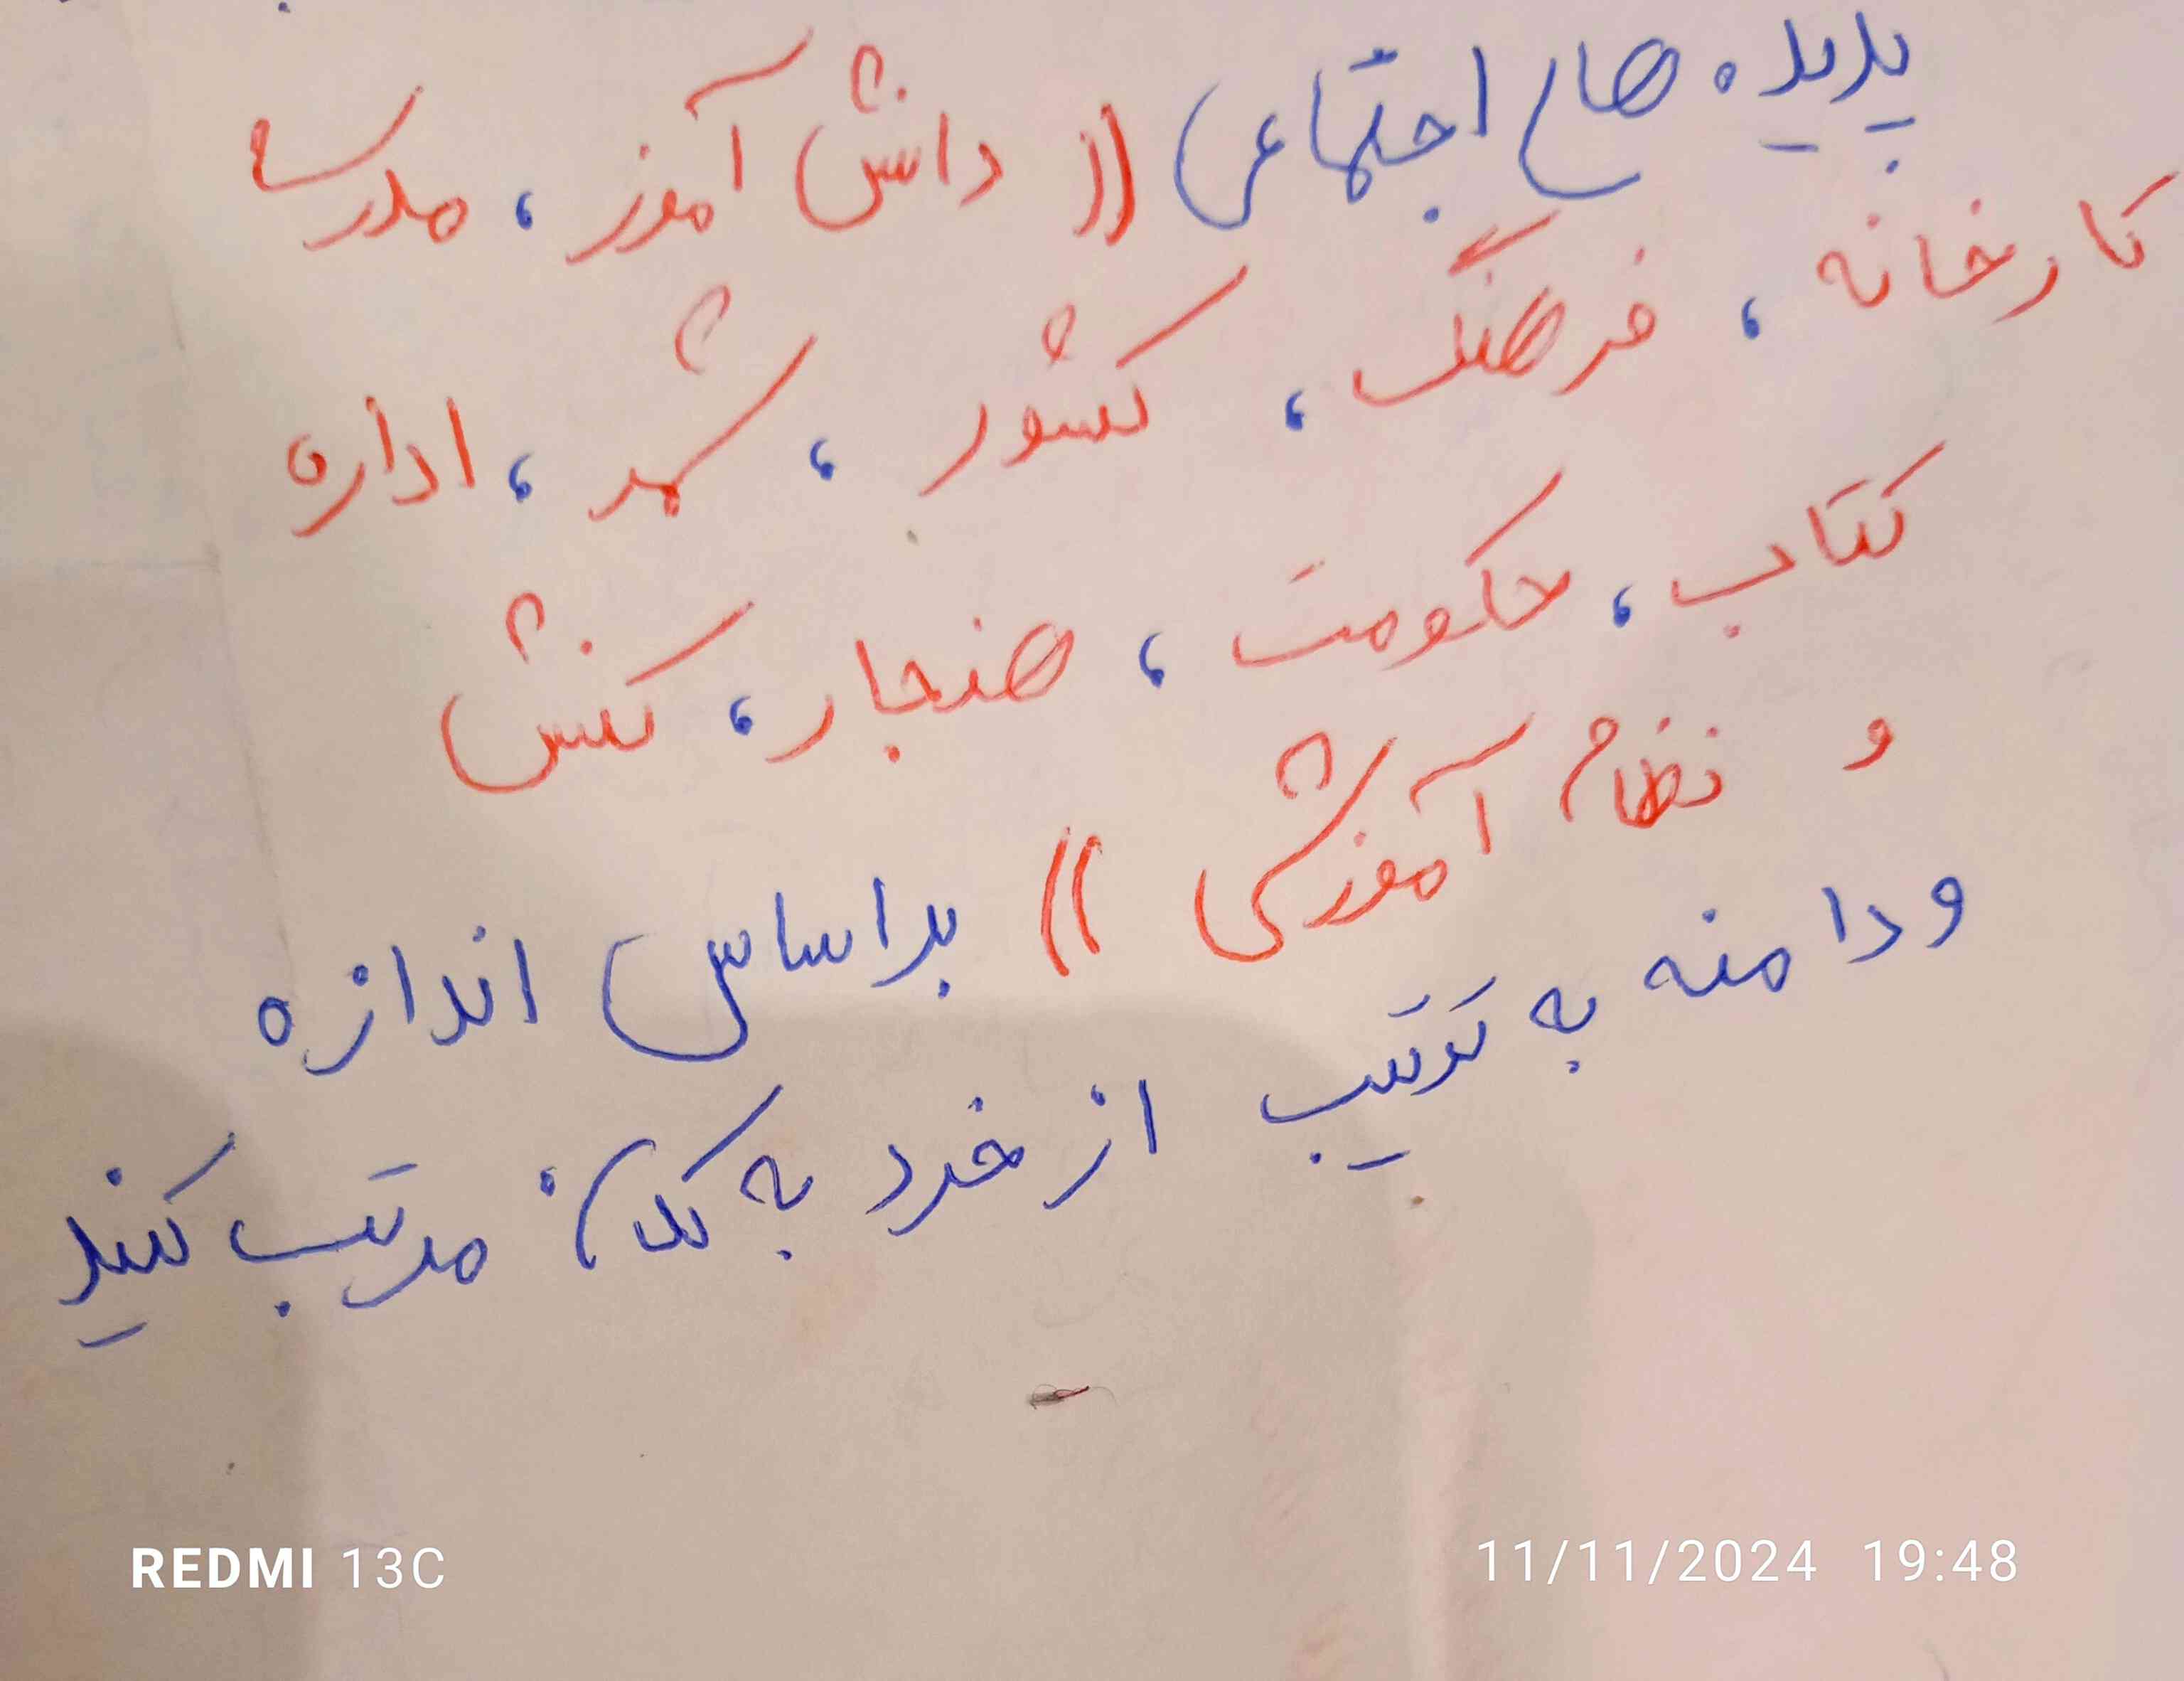 پدیده های اجتماعی (( دانش آموز ، مدرسه
کارخانه ، فرهنگ ، کشور ، شهر ، اداره
کتاب ، حکومت ، هنجار ، کنش
و نظام آموزشی )) براساس اندازه
ودامنه به ترتیب از خرد به کلان مرتب کنید
REDMI 13C
11/11/2024 19:48